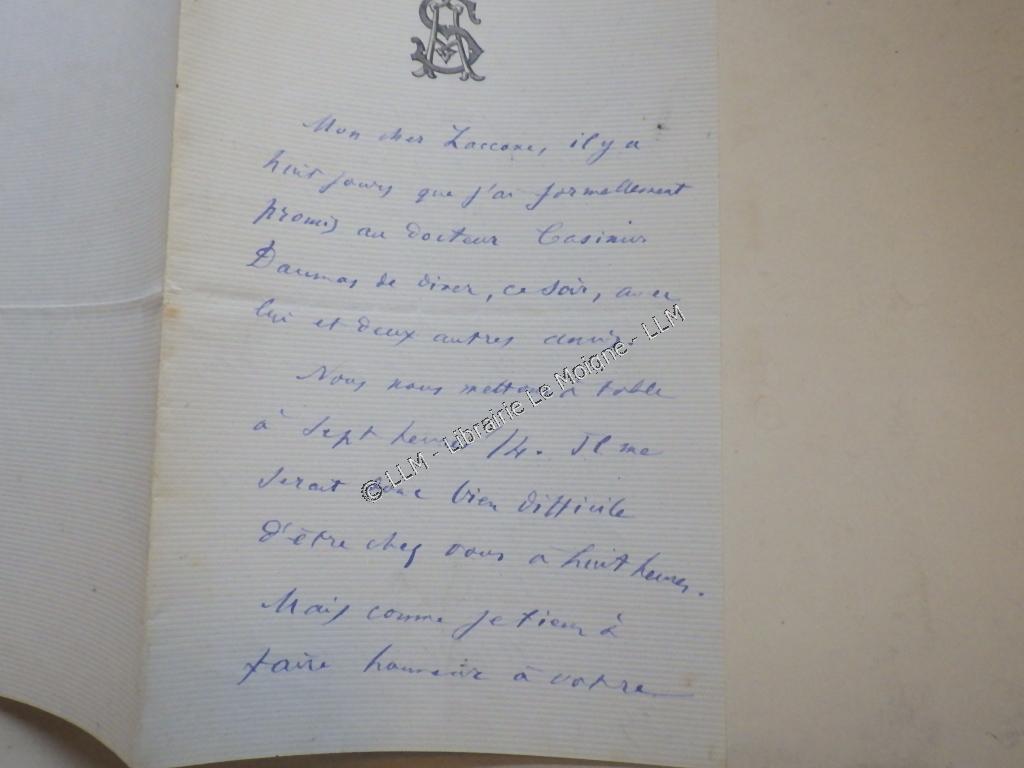 Mon cher Zaccone, il y a
huit jours que j'ai formellement
promis au docteur Casimir
Daumas de diner, ce soir, avec
lui et deux autres amis.
Nous nous mettons à table
à sept heures 1/4. Il me
serait donc bien difficile
d'être chez vous à huit heures.
Mais comme je tiens à
faire honneur à votre
© LLM - Librairie Le Moigne - LLM